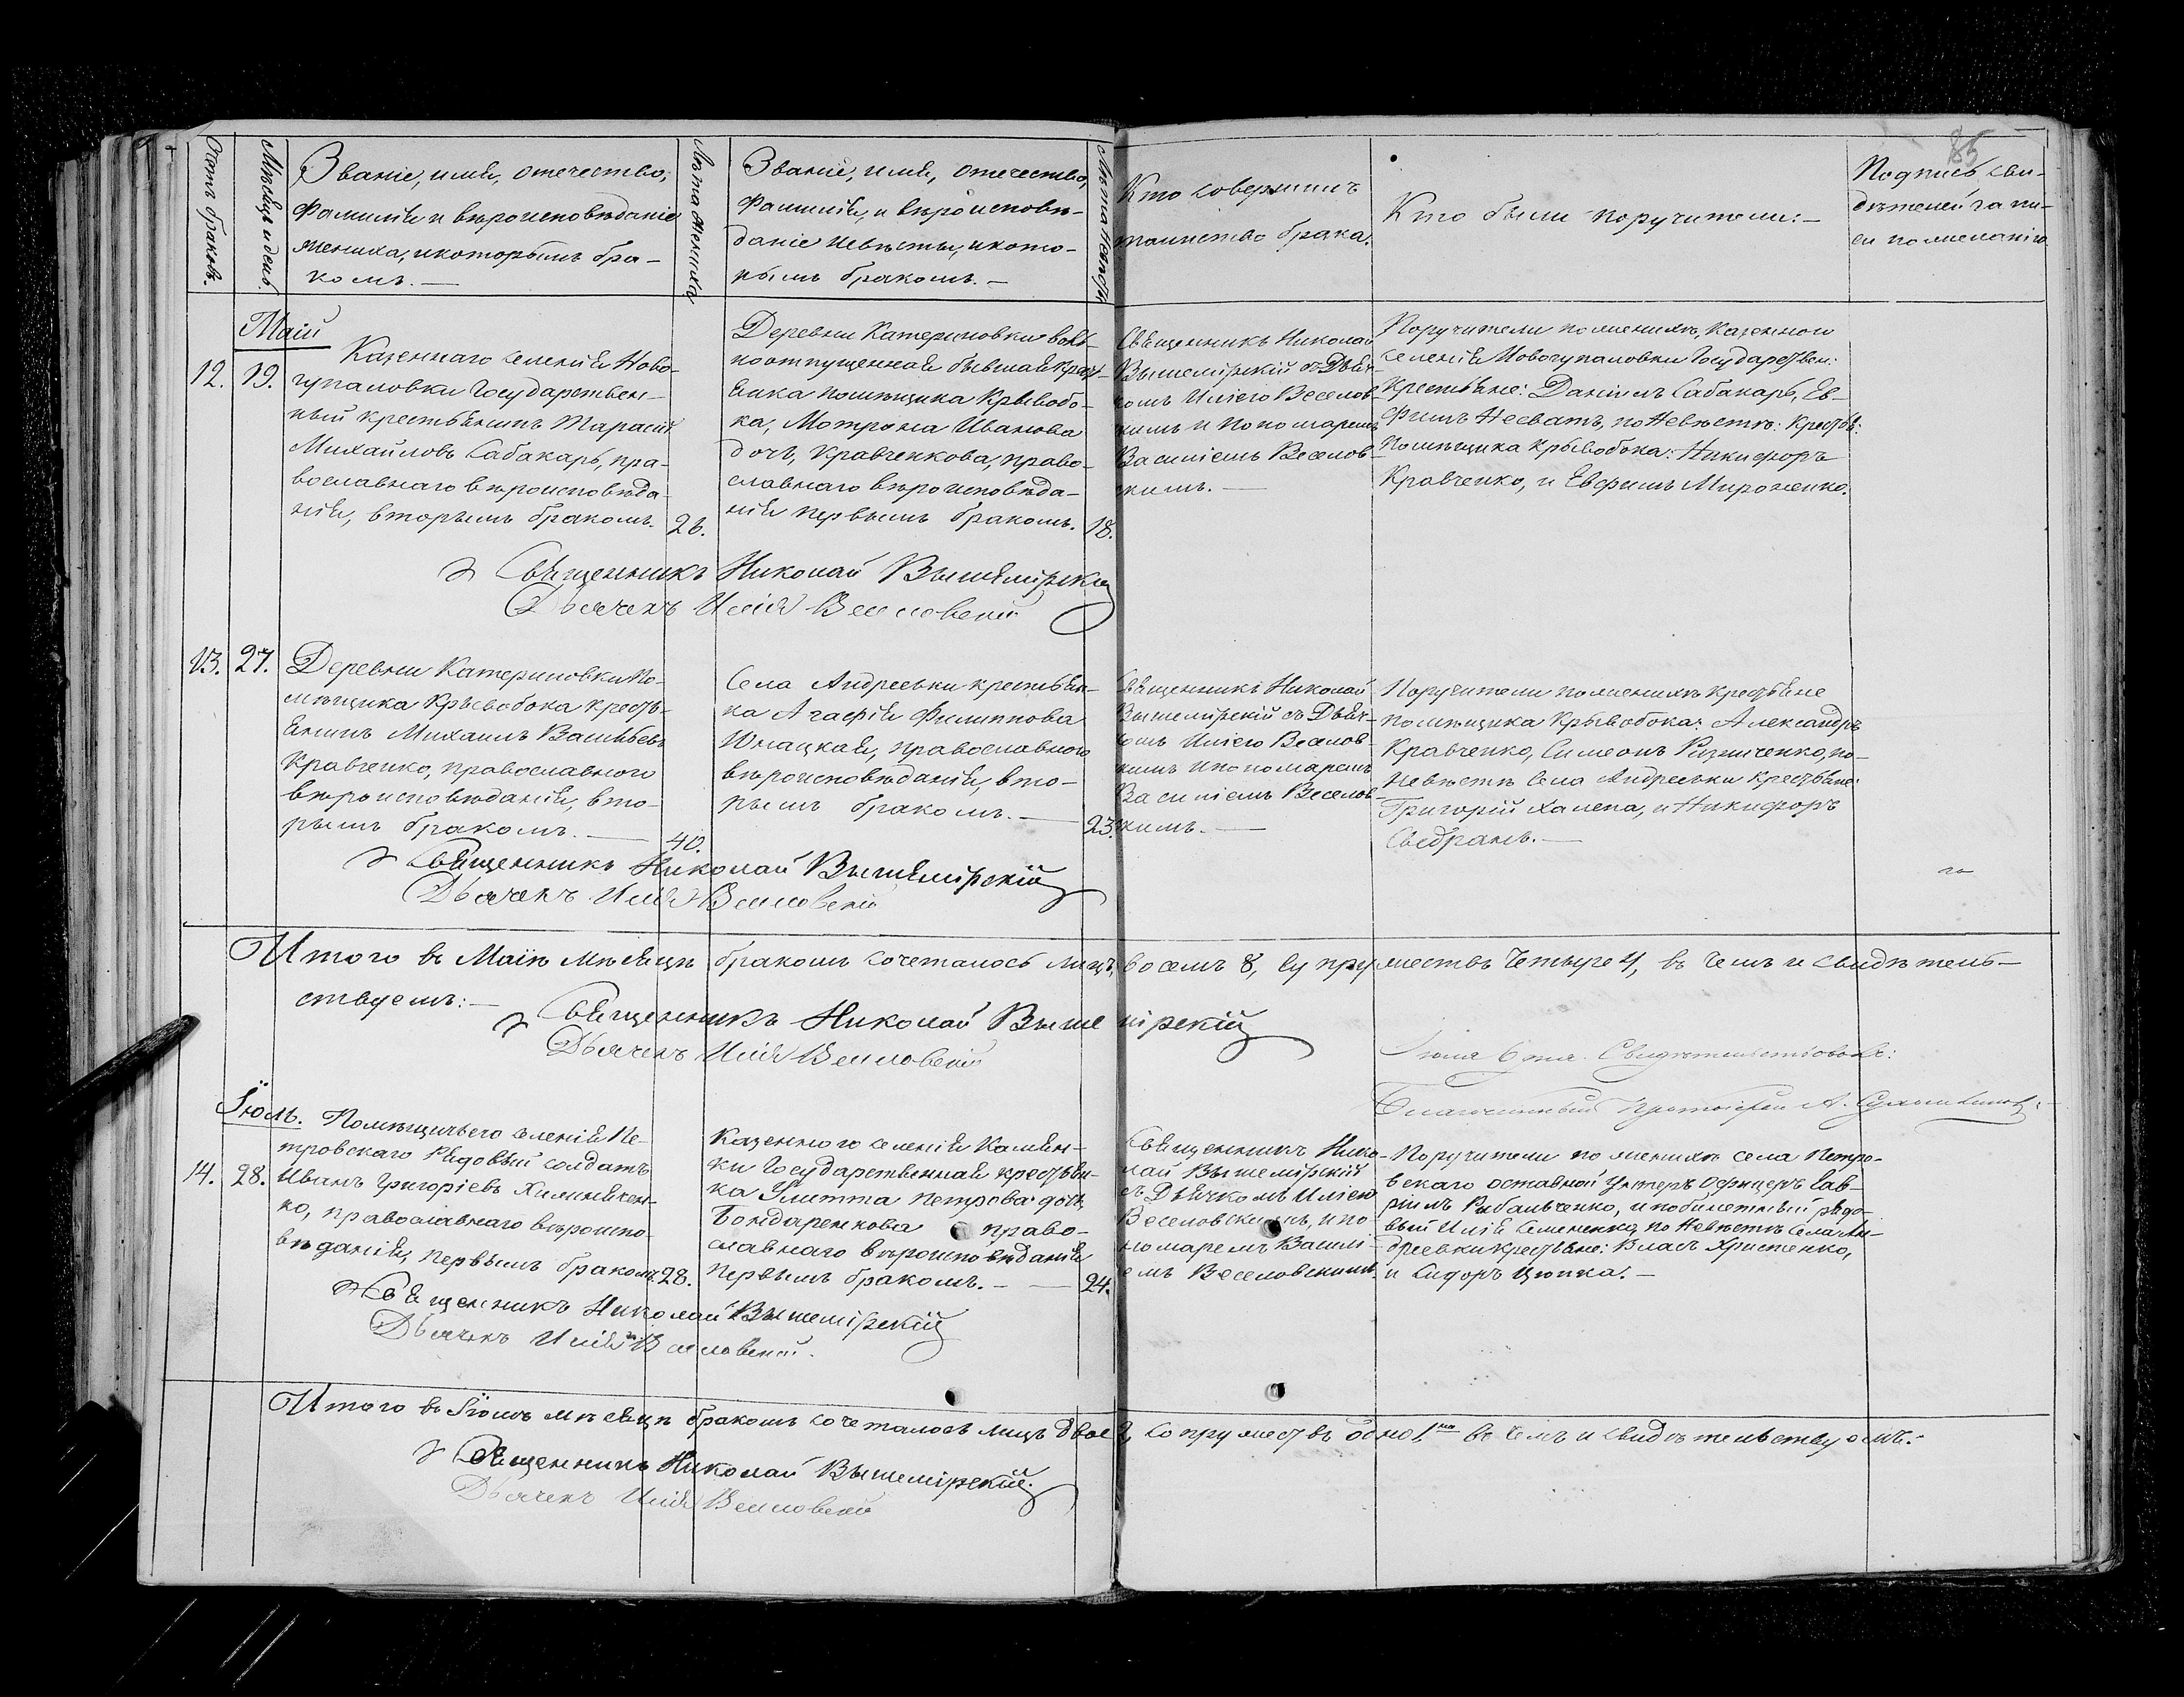 85
Счетъ браковъ.
Мѣсяцъ и день.
Званіе, имя, отечество,
фамилія и вѣроисповѣданіе
жениха, и которымъ бра-
комъ. —
Лѣта жениха
Званіе, имя, отечество,
фамилія, и вѣроисповѣ-
даніе невѣсты, и кото-
рымъ бракомъ. —
Лѣта невѣсты
Кто совершилъ
таинство брака.
Кто были поручители: —
Подпись сви-
дѣтелей записи
по желанію
Маій
12. 19.
Казеннаго селенія Ново-
гупаловки Государствен-
ный крестьянинъ Тарасій
Михайловъ Сабакарь, пра-
вославнаго вѣроисповѣда-
нія, вторымъ бракомъ. 26.
Деревни Катериновки воль-
ноотпущенная бывшая крест-
янка помѣщика Крывобо-
ка, Мотрона Иванова
дочь, Кравченкова, право-
славнаго вѣроисповѣда-
нія первымъ бракомъ. 18.
Священникъ Николай
Вышемірскій съ Дьяч-
комъ Иліею Веселов-
кимъ и пономаремъ
Василіемъ Веселов-
кимъ. —
Поручители по женихѣ, Казенного
селенія Новогупаловки Государствен:
крестьяне: Даніилъ Сабакарь, Ев-
фимъ Несватъ, по Невѣстѣ: Крестья:
помѣщика Крывобока: Никифоръ
Кравченко, и Евфимъ Мироненко.
Священникъ Николай Вышемірскій
Дьячекъ Илія Веселовскій
13. 27.
Деревни Катериновки По-
мѣщика Крывобока кресть-
янинъ Михаилъ Васильевъ
Кравченко, православного
вѣроисповѣданія, вто-
рымъ бракомъ. — 40.
Села Андреевки крестьян-
ка Агафія Филиппова
Юнацкая, православного
вѣроисповѣданія, вто-
рымъ бракомъ. — 23.
Священникъ Николай
Вышемірскій съ Дьяч-
комъ Иліею Веселов-
кимъ и пономаремъ
Василіемъ Веселов-
кимъ. —
Поручители по женихѣ крестьяне
помѣщика Крывобока: Александръ
Кравченко, Симеонъ Ризниченко, по
Невѣстѣ Села Андреевки крестьяне:
Григорій Халепа, и Никифоръ
Священникъ Николай Вышемірскій
Дьячекъ Илія Веселовскій
Итого въ Маіѣ мѣсяцѣ бракомъ сочеталось лицъ, восемъ 8, супружествъ четыре 4, въ чемъ и свидѣтель-
ствуемъ: —
Священникъ Николай Вышемірскій
Дьячекъ Илія Веселовскій
Іюля 6 дня. Свидѣтельствовалъ:
Благочинный Протоіерей А.
Іюль.
14. 28.
Помѣщичьего селенія Пе-
тровскаго Рядовый солдатъ
Иванъ Григоріевъ Химинчен-
ко, православнаго вѣроиспо-
вѣданія, первымъ бракомъ. 28.
Казенного селенія Камян-
ки Государственная крестьян-
ка Улитта Петрова дочь,
Бондаренкова право-
славнаго вѣроисповѣданія
первымъ бракомъ. — 24.
Священникъ Нико-
лай Вышемірскій
съ Дьячкомъ Иліею
Веселовскимъ, и по-
номаремъ Василі-
емъ Веселовскимъ.
Поручители по женихѣ села Петро-
вскаго оставной Унтеръ Офицеръ Гав-
ріилъ Рибальченко, и побилетный рядо-
вый Илія Семененко, по Невѣстѣ Села Ан-
дреевки крестьяне: Власъ Христенко,
и Сидоръ Цюпка. —
Священникъ Николай Вышемірскій
Дьячекъ Илія Веселовскій.
Итого въ Іюлѣ мѣсяцѣ бракомъ сочеталось лицъ двое 2, сопружествъ одно 1 въ чемъ и свидѣтельствуемъ: —
Священникъ Николай Вышемірскій.
Дьячекъ Илія Веселовскій